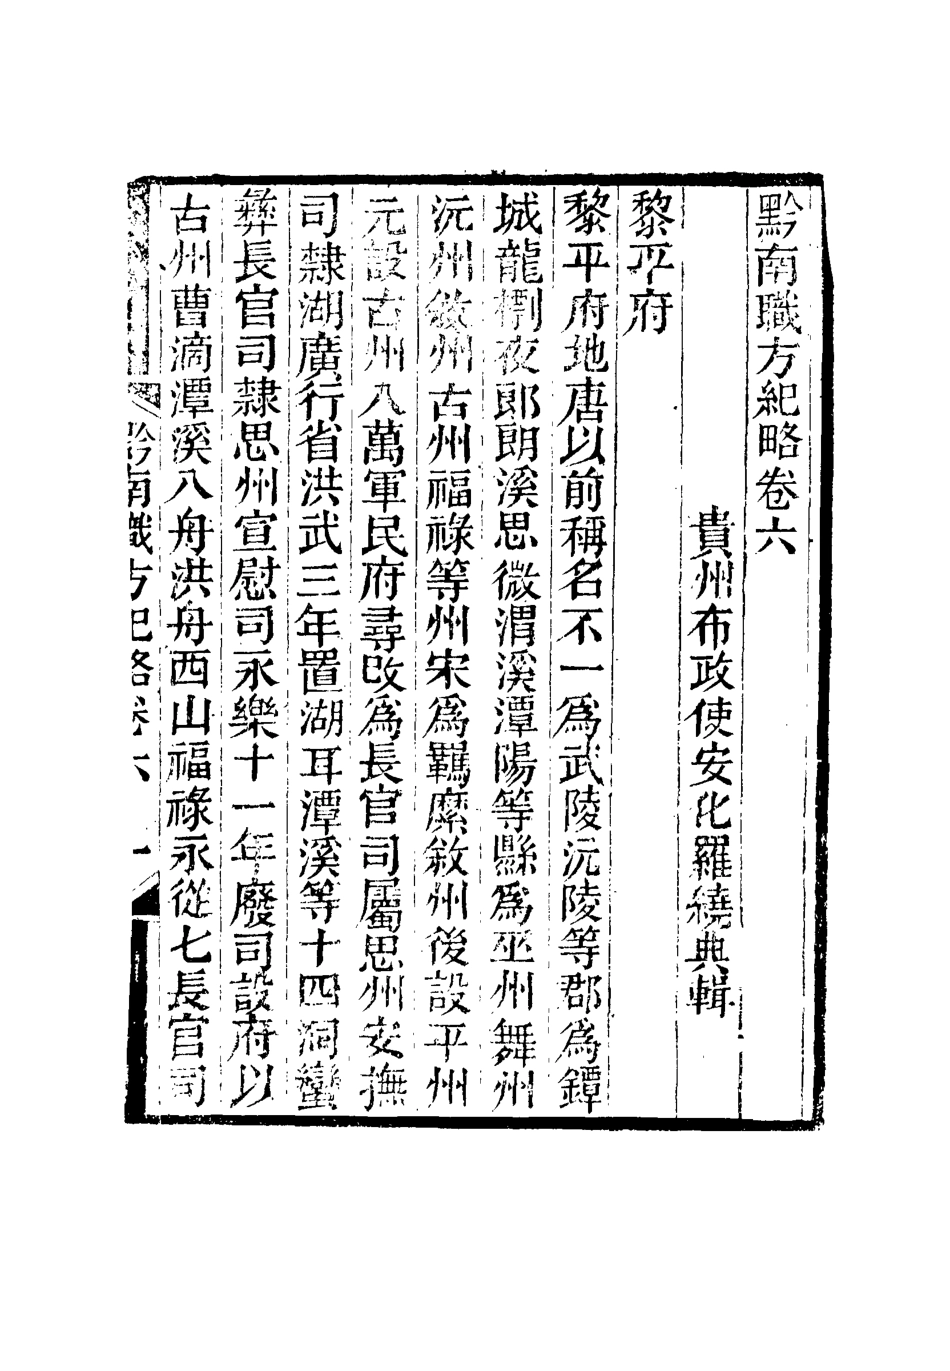 黔南職方紀略卷六
貴州布政使安化羅繞典輯
黎平府
黎平府地唐以前稱名不一爲武陵沅陵等郡爲鐔
城龍㯿夜郎朗溪思微渭溪潭陽等縣爲巫州舞州
沅州敘州古州福祿等州宋爲羈縻敘州後設平州
元設古州八萬軍民府尋改爲長官司屬思州安撫
司隸湖廣行省洪武三年置湖耳潭溪等十四洞蠻
彝長官司隸思州宣慰司永樂十一年廢司設府以
古州曹滴潭溪八舟洪舟西山福祿永從七長官司
黔南職方紀略卷六 一